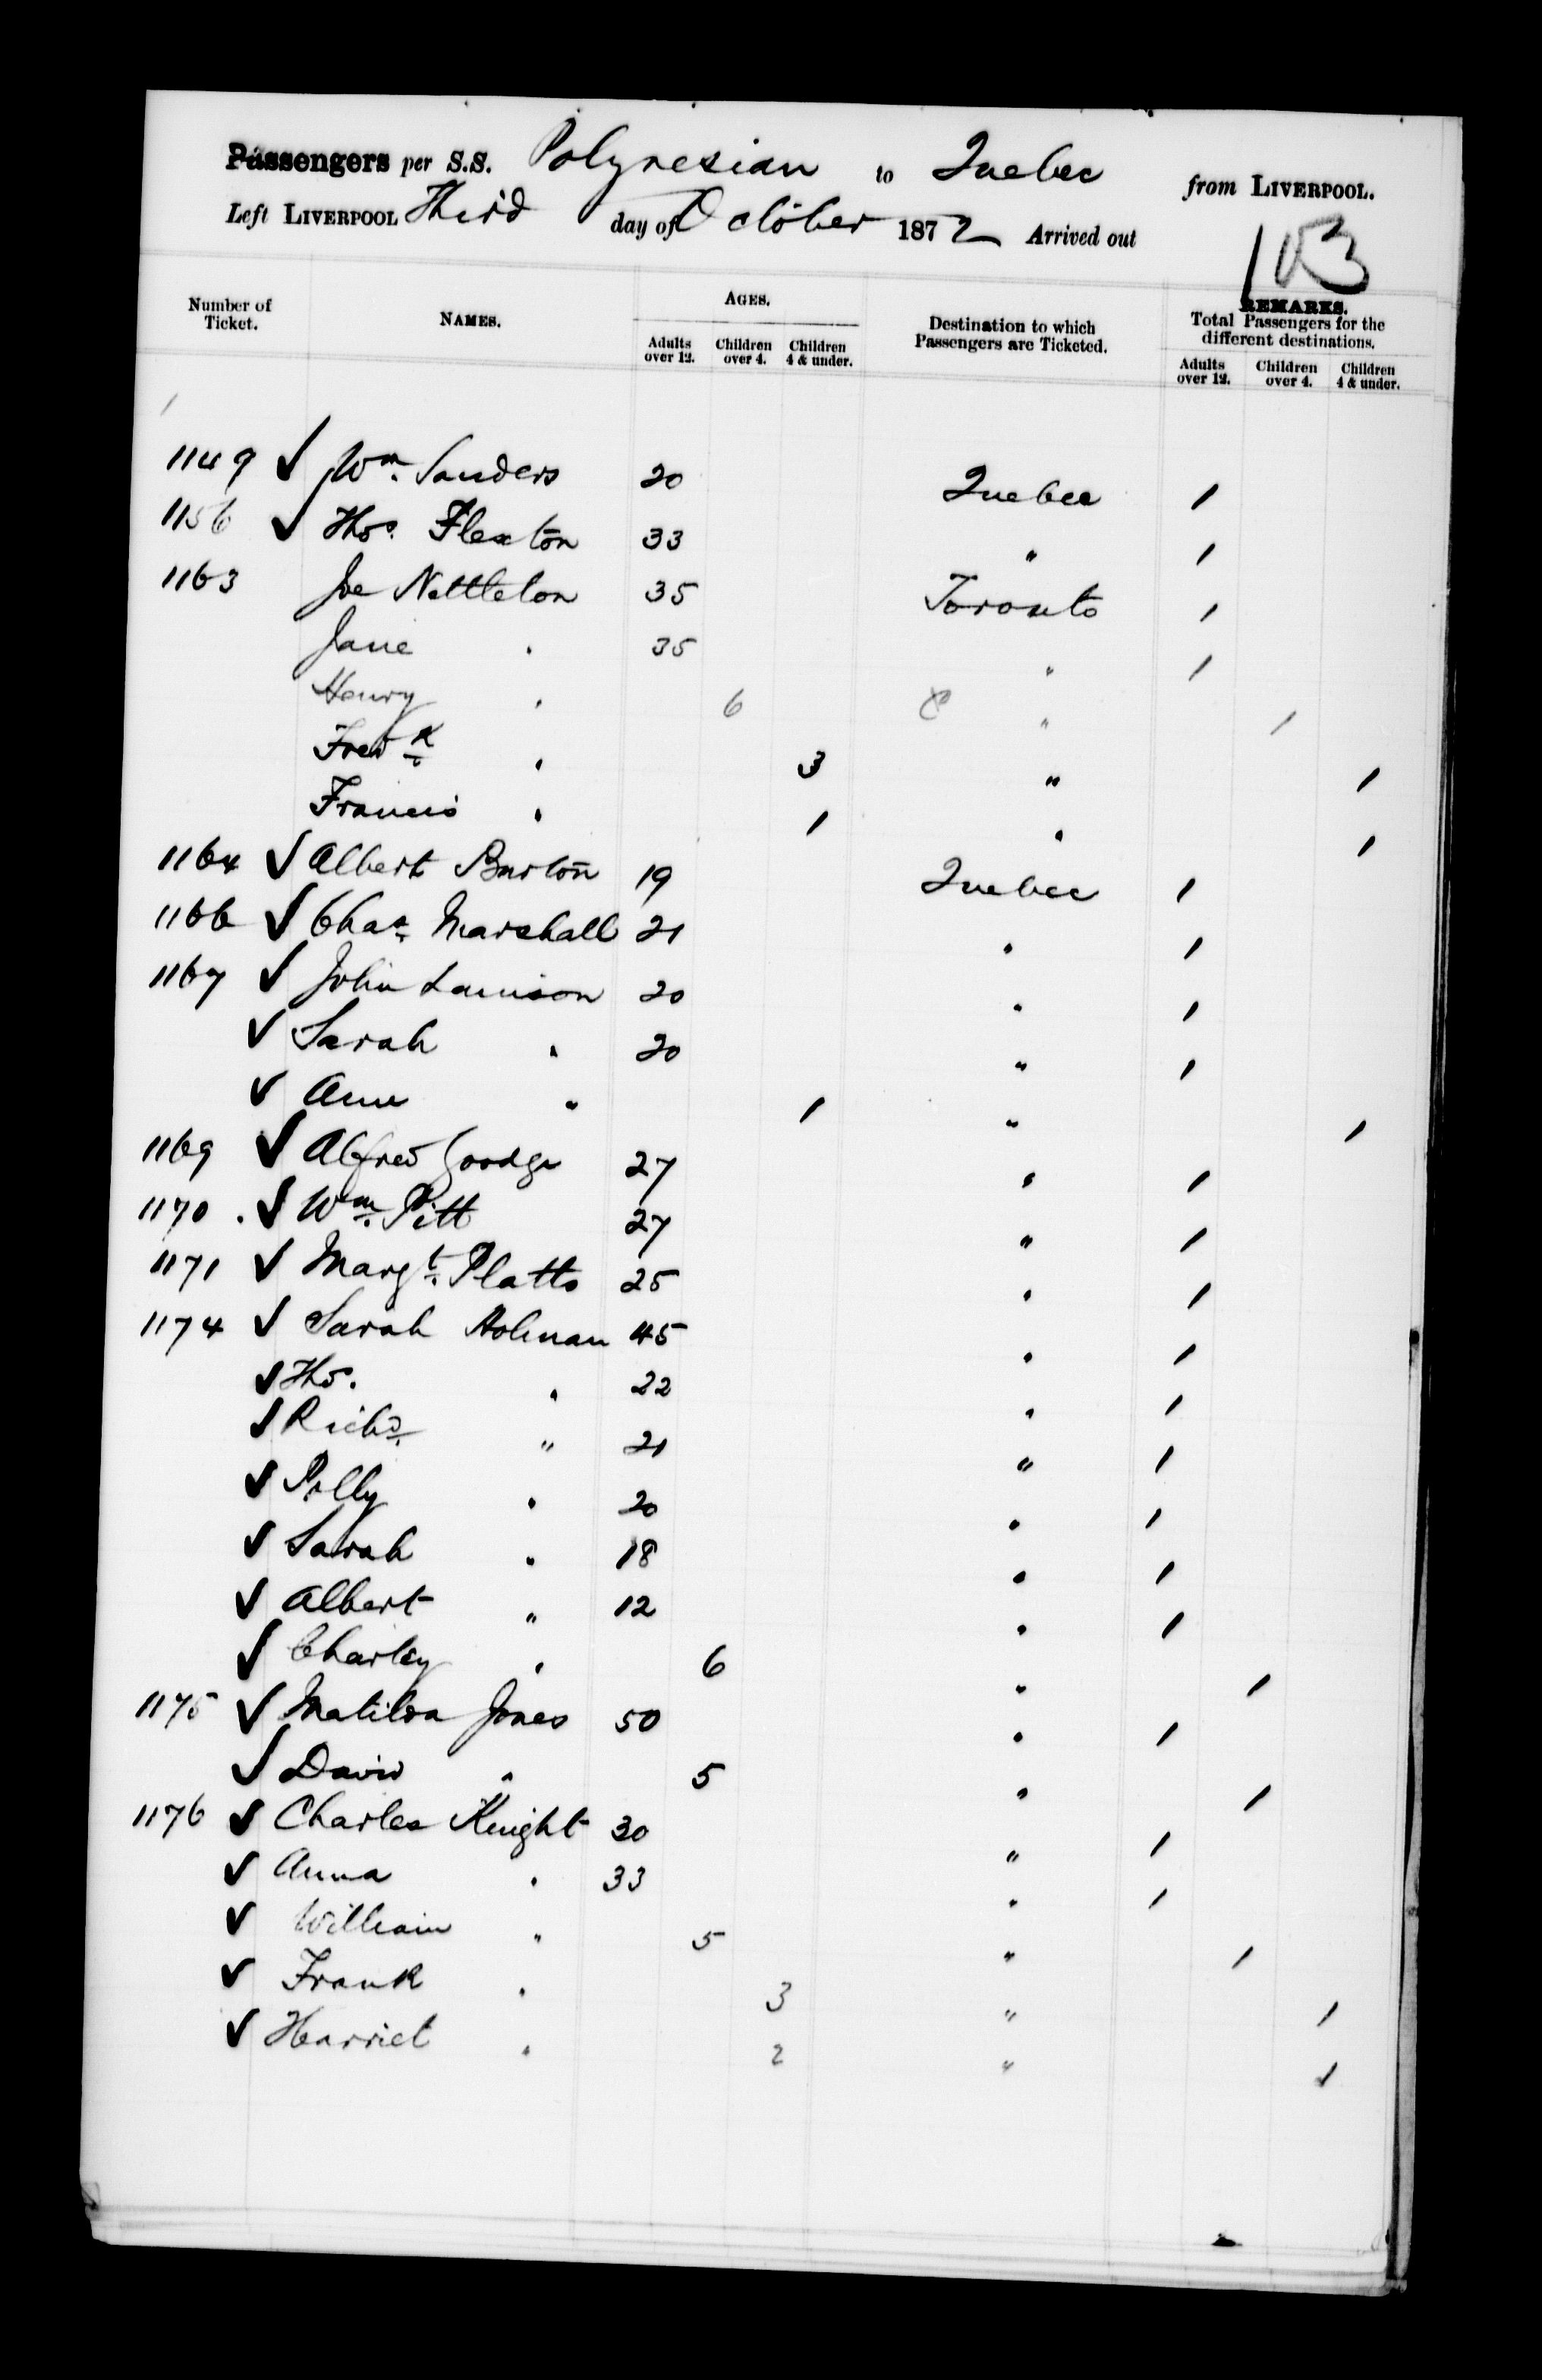 Passengers per S.S. Polynesian to Quebec from LIVERPOOL.
Left LIVERPOOL Third day of October 1872 Arrived out
103
Number of Ticket. NAMES. AGES. Destination to which Passengers are Ticketed. REMARKS. Total Passengers for the different destinations.
Adults over 12. Children over 4. Children 4 & under. Adults over 12. Children over 4. Children 4 & under.
1149 ✓ Wm. Sanders 20 Quebec 1
1156 ✓ Thos. Flexton 33 " 1
1163 Joe Nettleton 35 Toronto 1
Jane " 35 " 1
Henry " 6 " 1
Fredk " 3 " 1
Francis " 1 " 1
1164 ✓ Albert Burton 19 Quebec 1
1166 ✓ Chas. Marshall 21 " 1
1167 ✓ John Lamison 20 " 1
✓ Sarah " 20 " 1
✓ Ann " 1 " 1
1169 ✓ Alfred Goodge 27 " 1
1170 . ✓ Wm. Pitt 27 " 1
1171 ✓ Margt. Platts 25 " 1
1174 ✓ Sarah Holman 45 " 1
✓ Thos. " 22 " 1
✓ Richd. " 21 " 1
✓ Polly " 20 " 1
✓ Sarah " 18 " 1
✓ Albert " 12 " 1
✓ Charley " 6 " 1
1175 ✓ Matilda Jones 50 " 1
✓ David " 5 " 1
1176 ✓ Charles Knight 30 " 1
✓ Anna " 33 " 1
✓ William " 5 " 1
✓ Frank " 3 " 1
✓ Harriet " 2 " 1